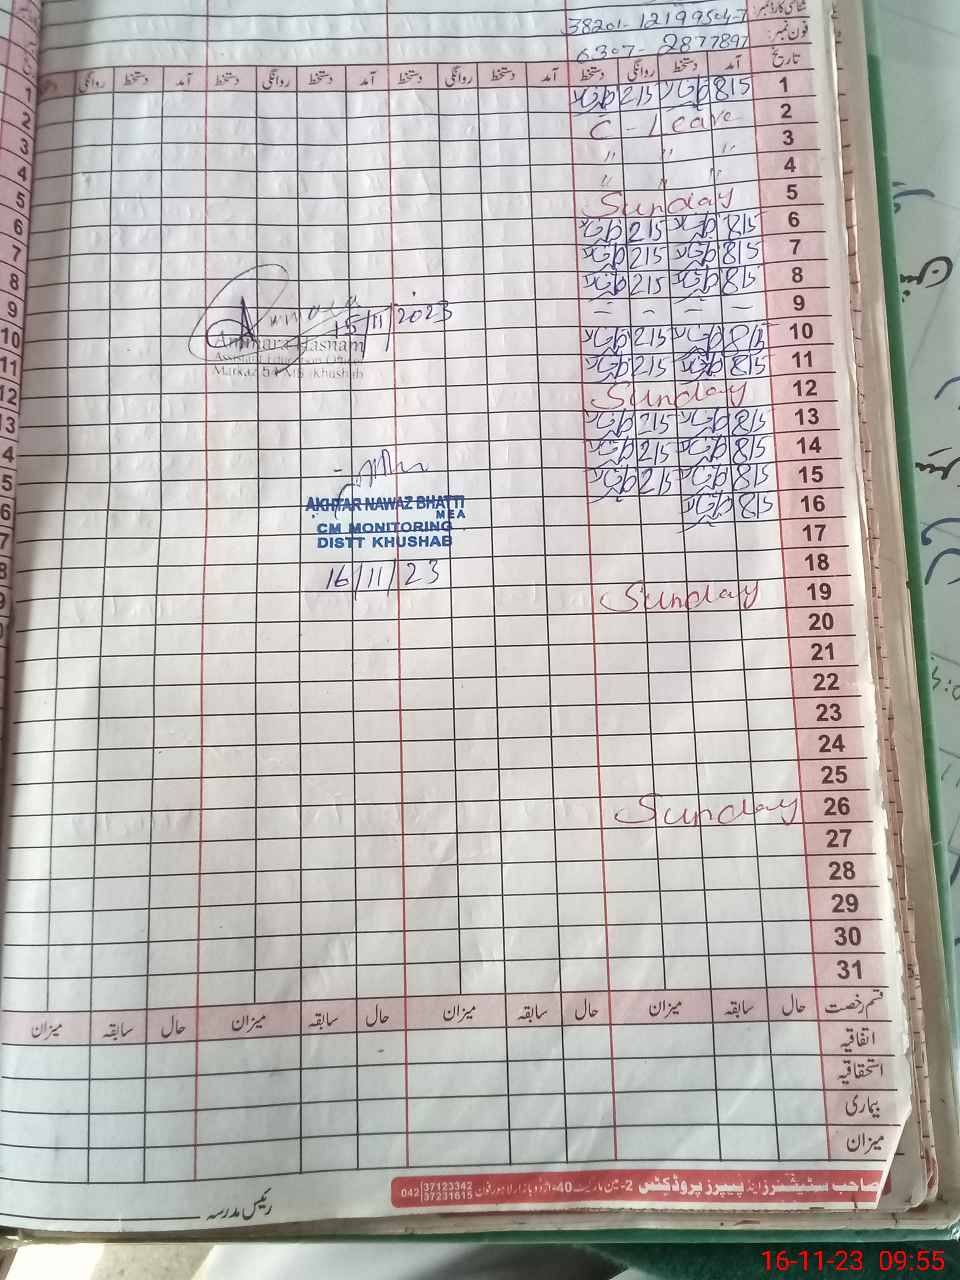 شناختی کارڈ نمبر: 38201-12199504-7
فون نمبر: 6307-2877897
تاریخ آمد دستخط روانگی دستخط آمد دستخط روانگی دستخط آمد دستخط روانگی دستخط آمد دستخط روانگی
1 815 215
2 C - Leave
3 " " "
4 " " "
5 Sunday
6 815 215
7 815 215
8 815 215
9 – – – –
10 815 215
11 815 215
12 Sunday
13 815 215
14 815 215
15 815 215
16 815
17
18
19 Sunday
20
21
22
23
24
25
26 Sunday
27
28
29
30
31
15/11/2023
Hasnam
Assistant Education Officer
Markaz 54 MB Khushab
AKHTAR NAWAZ BHATTI
MEA
CM MONITORING
DISTT KHUSHAB
16/11/23
قسم رخصت حال سابقہ میزان حال سابقہ میزان حال سابقہ میزان حال سابقہ میزان
اتفاقیہ
استحقاقیہ
بیماری
میزان
صاحب سٹیشنرز اینڈ پیپرز پروڈکٹس 2-مین مارکیٹ 40-اردو بازار لاہور فون 042 37123342 37231615
رئیس مدرسہ
16-11-23 09:55